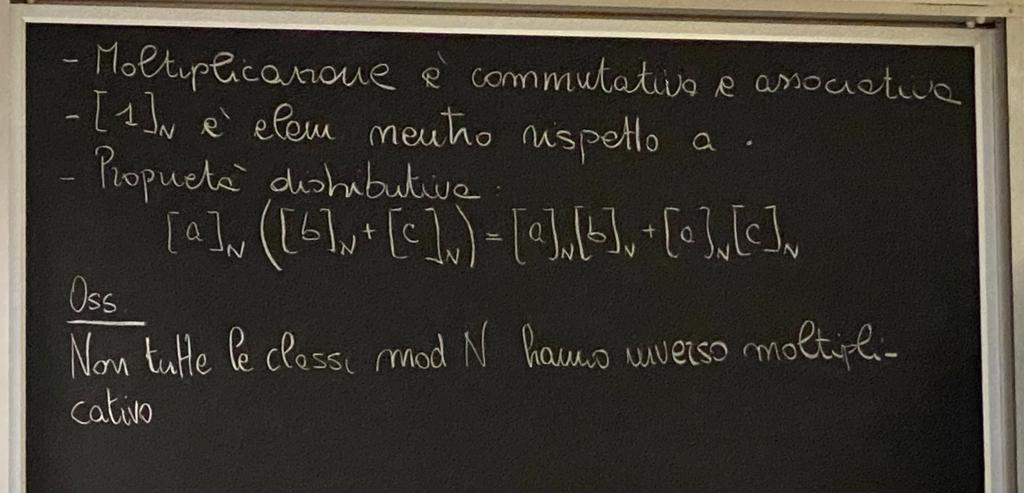 - Moltiplicazione è commutativa e associativa
- [1]_N è elem neutro rispetto a ·
- Proprietà distributiva:
[a]_N ([b]_N + [c]_N) = [a]_N [b]_N + [a]_N [c]_N
Oss
Non tutte le classi mod N hanno inverso moltipli-
cativo